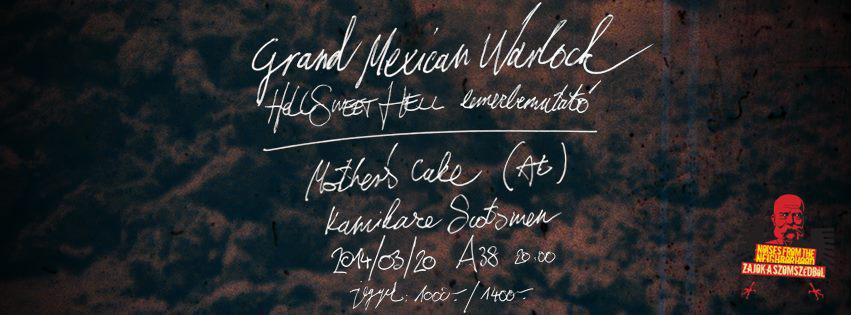 Grand Mexican Warlock
Hell Sweet Hell lemezbemutató
Mother's Cake (At)
Kamikaze Scotsmen
2014/03/20 A38 20.00
jegyek: 1000.-/1400.-
NOISES FROM THE
NEIGHBARHAAD
ZAJOK A SZOMSZÉDBÓL